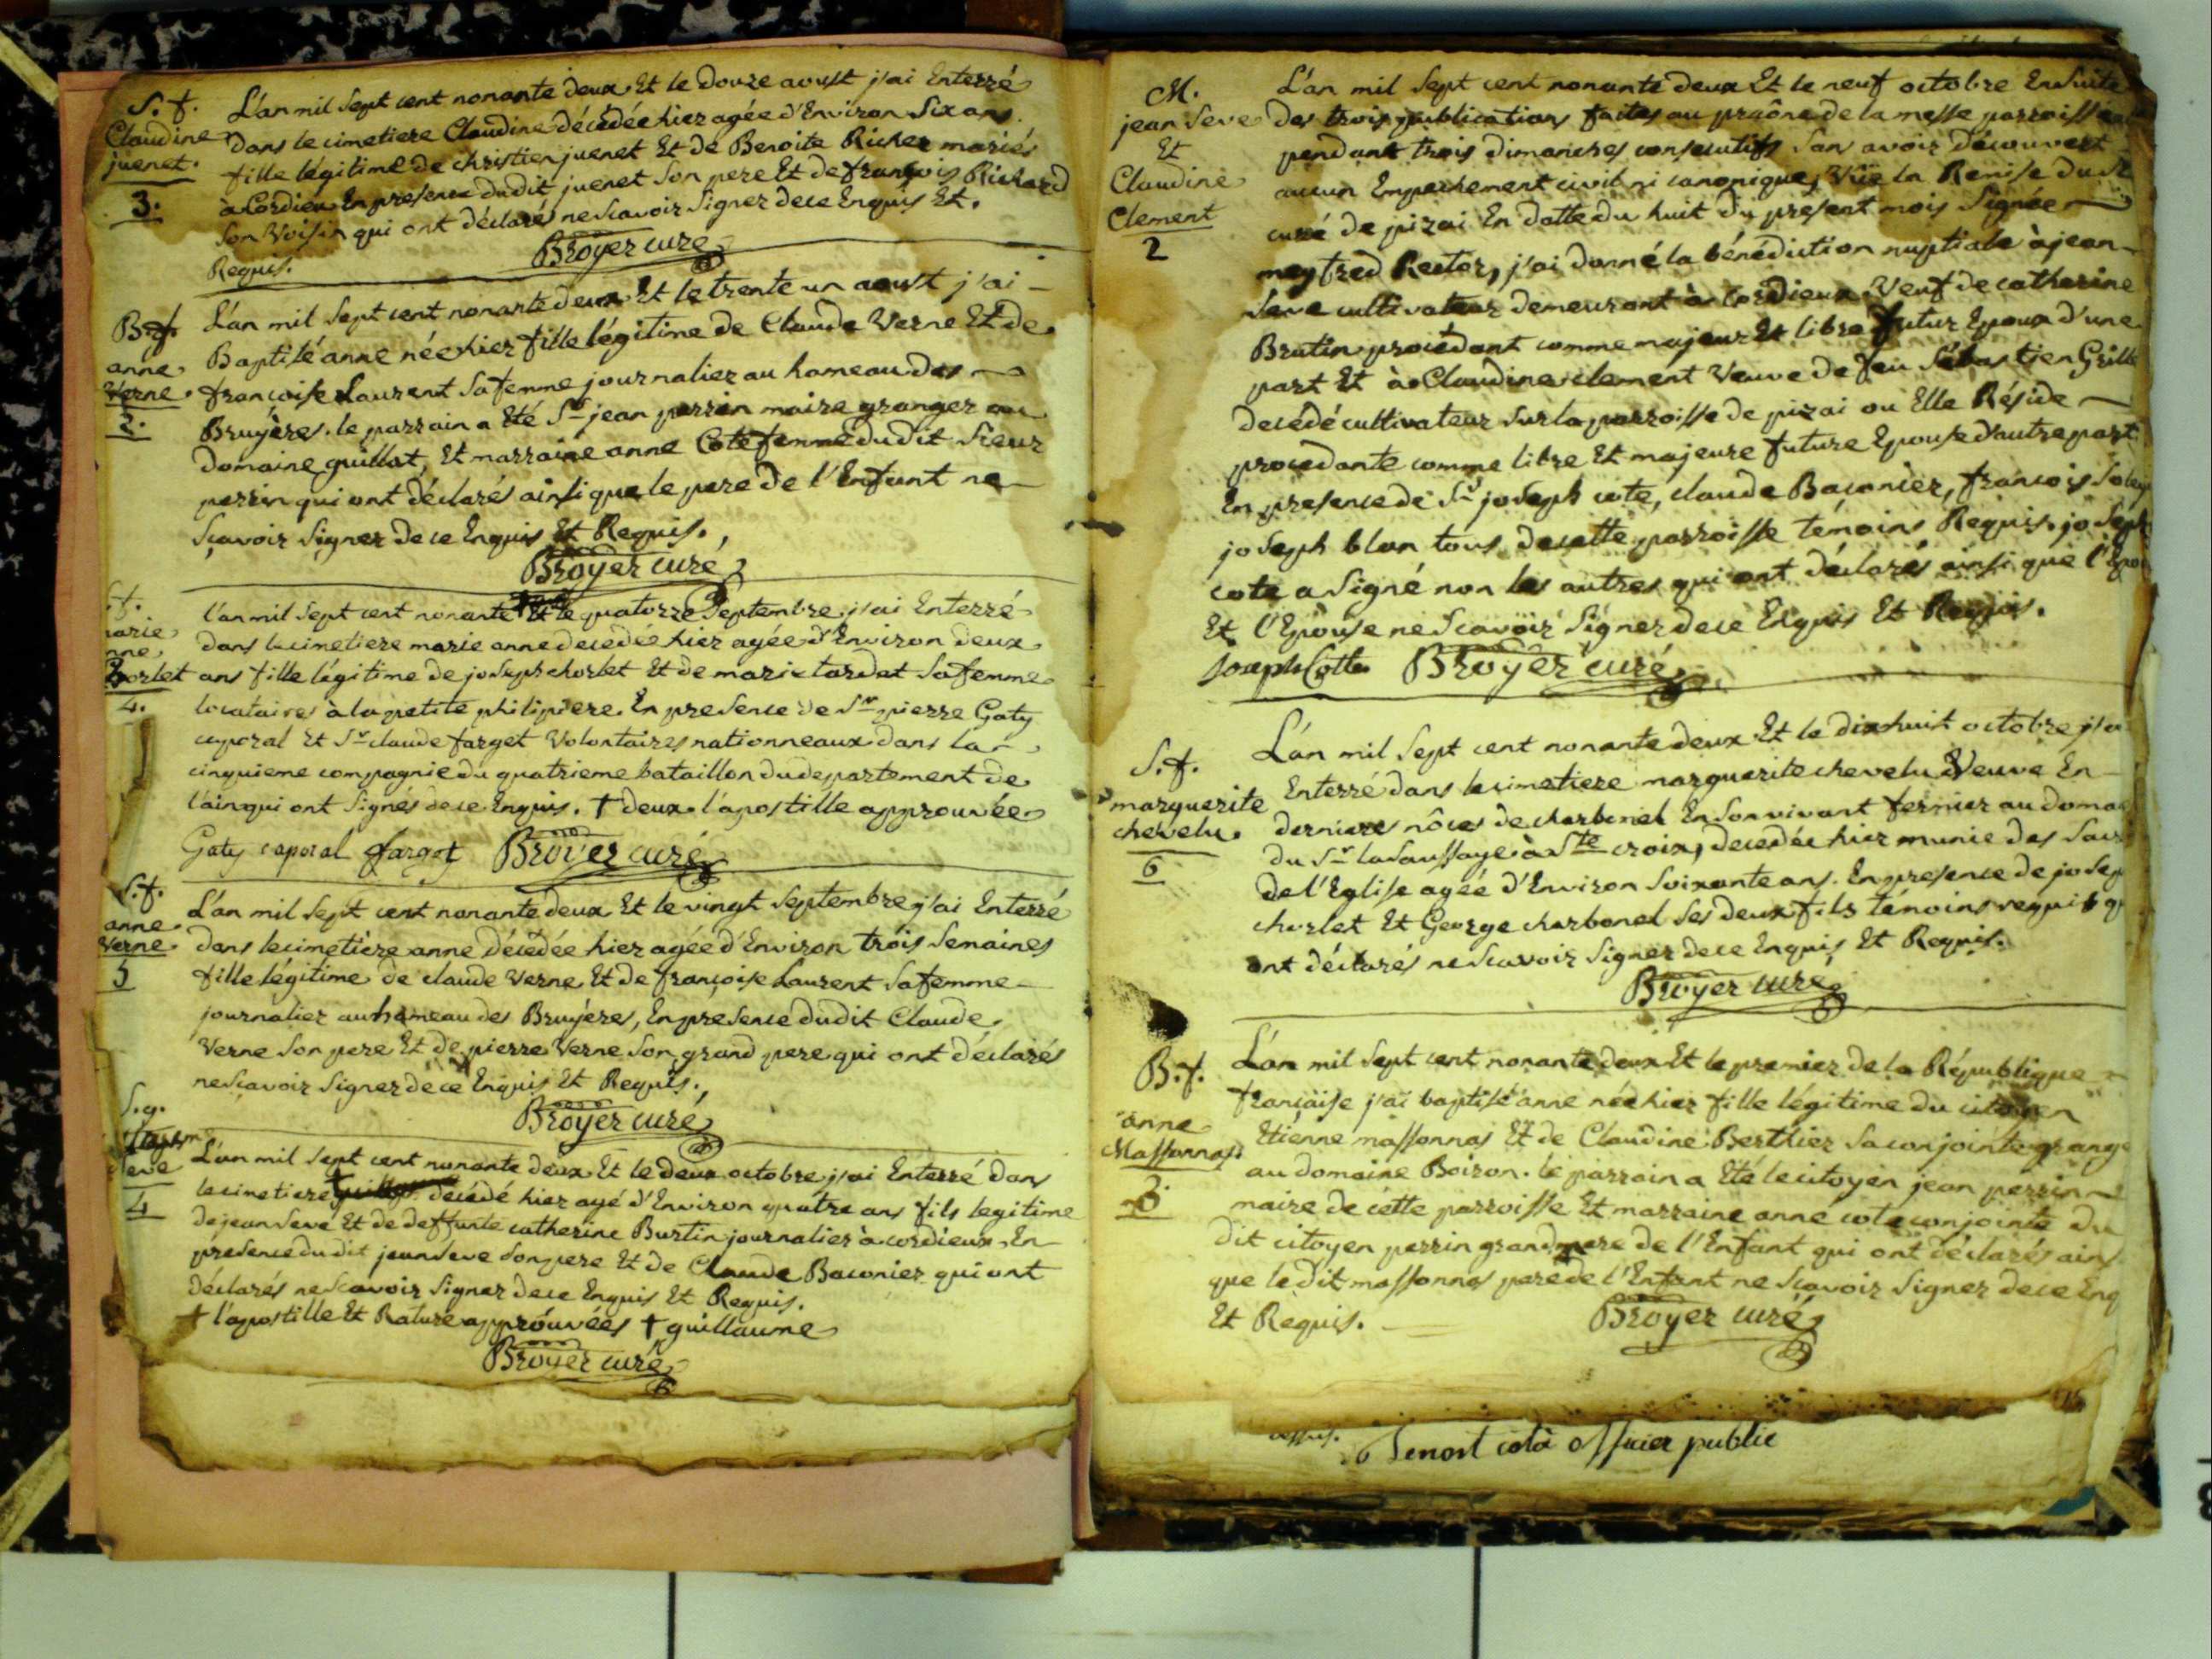 S. f.
Claudine
juenet.
3.
L'an mil Sept cent nonante deux Et le douze aoust j'ai Enterré
dans le cimetiere Claudine décédée hier agée d'Environ Six ans
fille légitime de christien juenet Et de Benoite Richer mariés
à Cordieu En presence dudit juenet Son pere Et de françois Richard
Son Voisin qui ont déclarés ne Scavoir Signer de ce Enquis Et
Requis.
Broyer curé
B. f.
anne
Verne
2.
L'an mil Sept cent nonante deux Et le trente un aoust j'ai
Baptisé anne née hier fille légitime de Claude Verne Et de
francoise Laurent Sa femme journalier au hameau des
Bruyères. le parrain a Eté Sr jean perrin maire granger au
domaine guillot, Et marraine anne Cote femme dudit Sieur
perrin qui ont déclarés ainsi que le pere de l'Enfant ne
Scavoir Signer de ce Enquis Et Requis.
Broyer curé
.f.
marie
anne
chorlet
4.
l'an mil Sept cent nonante † Et le quatorze Septembre j'ai Enterré
dans le cimetiere marie anne decedée hier agée d'Environ deux
ans fille légitime de joseph chorlet Et de marie tardet Sa femme
locataires à la petite philipiere. En presence de Sr pierre Gaty
caporal Et Sr claude farget Volontaires nationneaux dans la
cinquieme compagnie du quatrieme bataillon du departement de
l'ain qui ont Signés de ce Enquis. † deux l'apostille approuvée
Gaty caporal farget Broyer curé
S.f.
anne
Verne
5
L'an mil Sept cent nonante deux Et le vingt Septembre j'ai Enterré
dans le cimetière anne décédée hier agée d'Environ trois Semaines
fille légitime de claude Verne Et de françoise Laurent Sa femme
journalier au hameau des Bruyères, En presence dudit Claude
Verne Son pere Et de pierre Verne Son grand pere qui ont déclarés
ne Scavoir Signer de ce Enquis Et Requis.
Broyer curé
S.g.
Seve
4
L'an mil Sept cent nonante deux Et le deux octobre j'ai Enterré dans
le cimetiere † decédé hier agé d'Environ quatre ans fils legitime
de jean Seve Et de deffunte catherine Burtin journalier à cordieux. En
presence du dit jean Seve Son pere Et de Claude Baconier qui ont
déclarés ne Scavoir Signer de ce Enquis Et Requis.
† l'apostille Et Rature approuvées † guillaume
Broyer curé
M.
jean Seve
Et
Claudine
Clement
2
L'an mil Sept cent nonante deux Et le neuf octobre Ensuite
des trois publications faites au praône de la messe parroissiale
pendant trois dimanches consecutifs Sans avoir découvert
aucun Empechement civil ni canonique, Vüe la Remise du Sr
curé de pizai En datte du huit du present mois Signée
meyfred Rector, j'ai donné la bénédiction nuptiale à jean
Seve cultivateur demeurant à Cordieux. Veuf de catherine
Brutin procédant comme majeur Et libre futur Epoux d'une
part Et à Claudine clement Veuve de feu Sébastien Grille
decédé cultivateur Sur la parroisse de pizai ou Elle Réside
procedante comme libre Et majeure future Epouse d'autre part
En presence de Sr joseph cote, claude Baconier, francois
joseph blan tous de cette parroisse témoins Requis. joseph
cote a Signé non les autres qui ont déclarés ainsi que l'Epou
Et l'Epouse ne Scavoir Signer de ce Enquis Et Requis.
Joseph Cotte Broyer curé
S.f.
marguerite
chevelu
6
L'an mil Sept cent nonante deux Et le dix huit octobre j'ai
Enterré dans le cimetiere marguerite chevelu Veuve En
dernieres nôces de charbonel En Son vivant fermier au domai
du Sr laSaussaye à Ste croix, decedée hier munie des Sacr
de l'Eglise agée d'Environ Soixante ans. En presence de josep
chorlet Et George charbonel Ses deux fils témoins requis q
ont déclarés ne Scavoir Signer de ce Enquis Et Requis.
Broyer curé
B.f.
anne
Massonnas
3.
L'an mil Sept cent nonante deux Et le premier de la République
française j'ai baptisé anne née hier fille légitime du citoyen
Etienne massonnas Et de Claudine Berthier Sa conjointe grange
au domaine Boiron. le parrain a Eté le citoyen jean perrin
maire de cette parroisse Et marraine anne cote conjointe du
dit citoyen perrin grand mere de l'Enfant qui ont déclarés ains
que le dit massonnas pere de l'Enfant ne Scavoir Signer de ce Enq
Et Requis.
Broyer curé
officier public